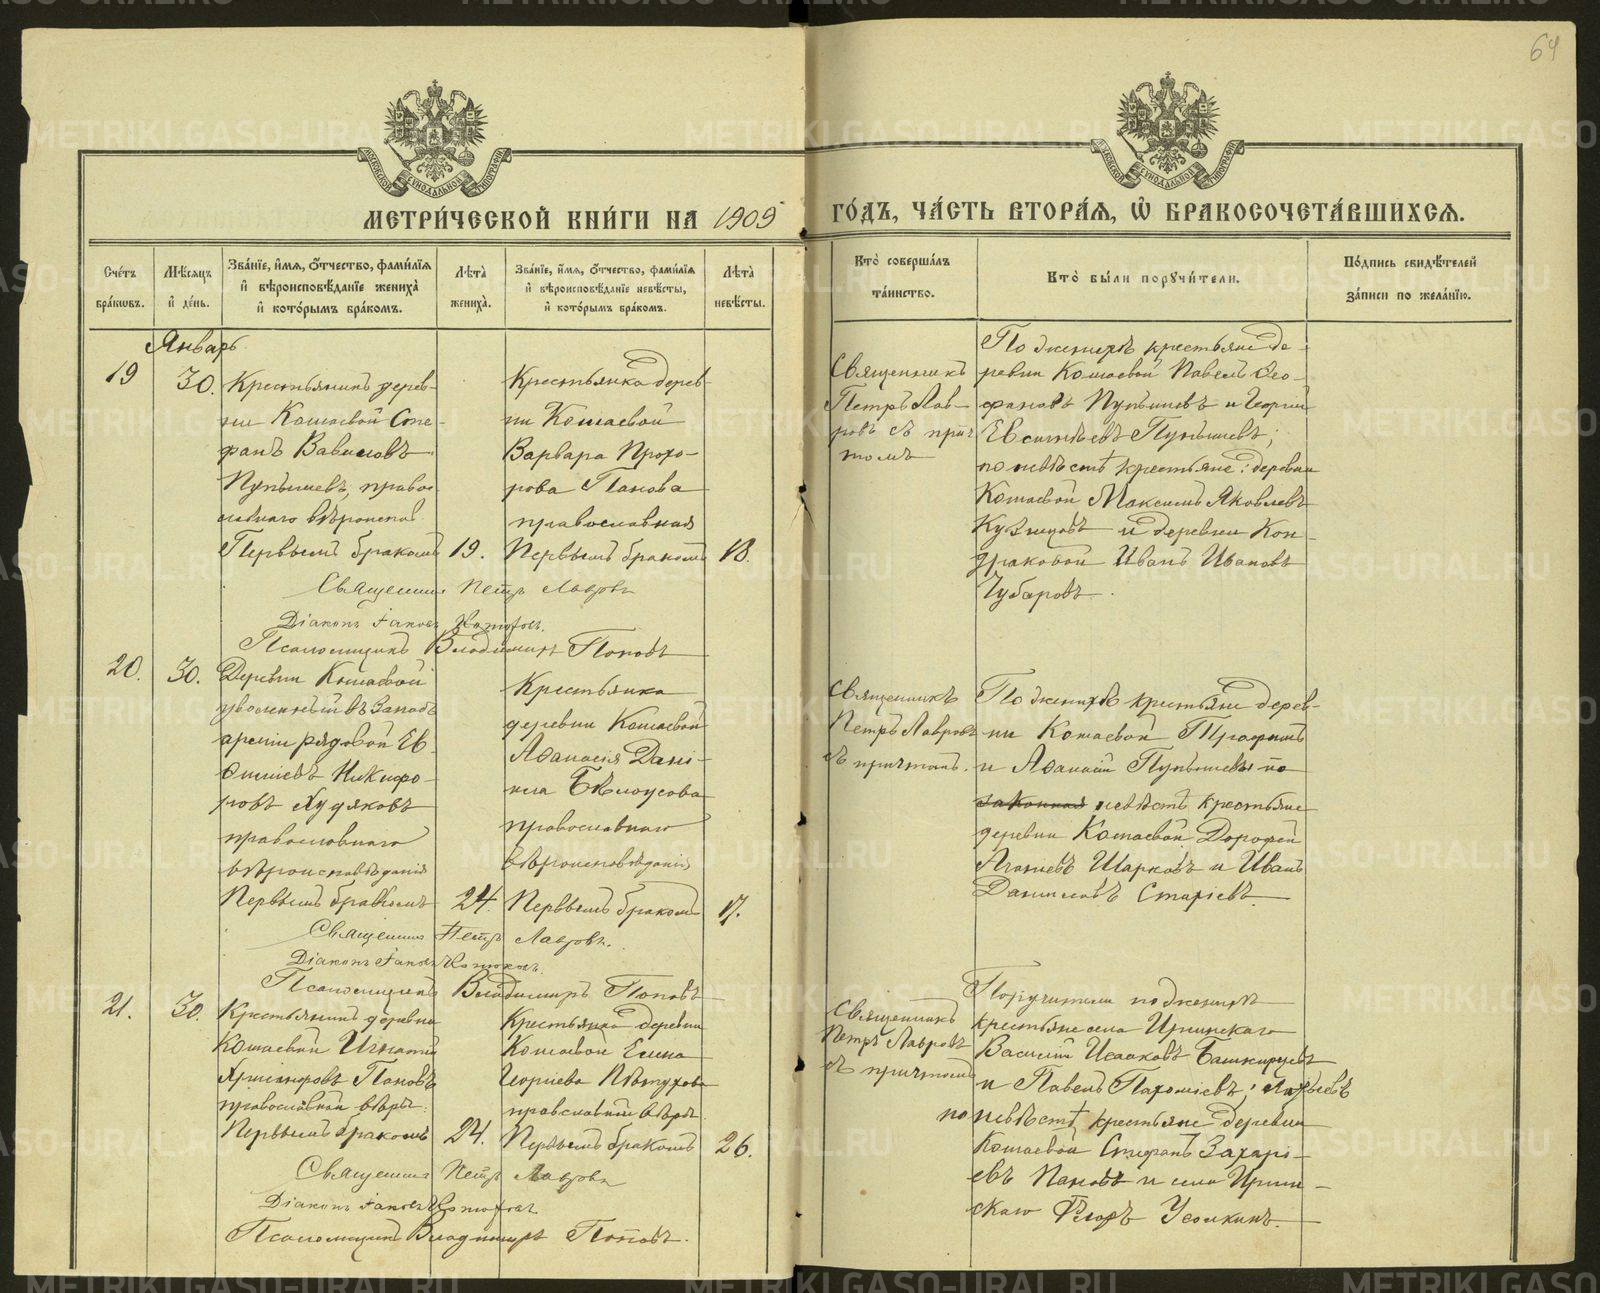 64
МОСКОВСКОЙ СѴНОДАЛЬНОЙ ТИПОГРАФІИ
МЕТРИ́ЧЕСКОЙ КНИ́ГИ НА 1909
ГО́ДЪ, ЧА́СТЬ ВТОРА́Я, Ѡ҆ БРАКОСОЧЕТА́ВШИХСЯ.
Сче́тъ бра́ковъ.
Мѣ́сяцъ и҆ де́нь.
Зва́нїе, и҆́мя, ѻ҆́тчество, фами́лїя
и҆ вѣроисповѣ́данїе жениха̀
и҆ кото́рымъ бра́комъ.
Лѣ́та̀ жениха̀.
Зва́нїе, и҆́мя, ѻ҆́тчество, фами́лїя
и҆ вѣроисповѣ́данїе невѣ́сты,
и҆ кото́рымъ бра́комъ.
Лѣ́та̀ невѣ́сты.
Кто̀ соверша́лъ
та́инство.
Кто̀ бы́ли порꙋчи́тели.
По́дпись свидѣ́телей
за́писи по жела́нїю.
Январь
19
30.
Крестьянинъ дерев-
ни Кошаевой Сте-
фанъ Вавиловъ
Пупышевъ, право
славнаго вѣроиспов.
Первымъ бракомъ
19.
Крестьянка дерев-
ни Кошаевой
Варвара Прохо-
рова Панова
православная
Первымъ бракомъ
18.
Священникъ
Петръ Лав-
ровъ съ прич
томъ
По женихѣ крестьяне де-
ревни Кошаевой Павелъ Ѳео-
фановъ Пупышевъ и Георгій
Евсигнѣевъ Пупышевъ;
по невѣстѣ крестьяне: деревни
Кошаевой Максимъ Яковлевъ
Кузнецовъ и деревни Кон-
драковой Иванъ Ивановъ
Чубаровъ.
Священник Петръ Лавровъ
Діаконъ Іаковъ
Псаломщикъ Владимиръ Поповъ
20.
30.
Деревни Кошаевой
уволенный въ запасъ
арміи рядовой Ев
Никифо-
ровъ Худяковъ
православнаго
вѣроисповѣданія
Первымъ бракомъ
24.
Крестьянка
деревни Кошаевой
Аѳанасія Дані-
ила Бѣлоусова
православнаго
вѣроисповѣданія
Первымъ бракомъ
17.
Священникъ
Петръ Лавровъ
съ причтомъ.
По женихѣ крестьяне дерев-
ни Кошаевой Трофимъ
и Аѳанасій Пупышевы по
законная невѣстѣ крестьяне
деревни Кошаевой Дорофей
Шарковъ и Иванъ
Даниловъ
Священник Петръ Лавровъ.
Діаконъ Іаковъ
Псаломщикъ Владимиръ Поповъ
21.
30.
Крестьянинъ деревни
Кошаевой Игнатій
Христофоровъ Пановъ
православной вѣры.
Первымъ бракомъ
24.
Крестьянка деревни
Кошаевой Елена
Георгіева Пѣтухова
православной вѣры.
Первымъ бракомъ
26.
Священникъ
Петръ Лавровъ
съ причтомъ
Поручители по женихѣ
крестьяне села Иргинскаго
Василій Исааковъ Башкирцевъ
и Павелъ Пахоміевъ;
по невѣстѣ крестьяне деревни
Кошаевой Стефанъ Захарі-
евъ Пановъ и села Иргин-
скаго Ѳедоръ Усолкинъ.
Священник Петръ Лавровъ
Діаконъ Іаковъ
Псаломщикъ Владимиръ Поповъ.
METRIKI.GASO-URAL.RU